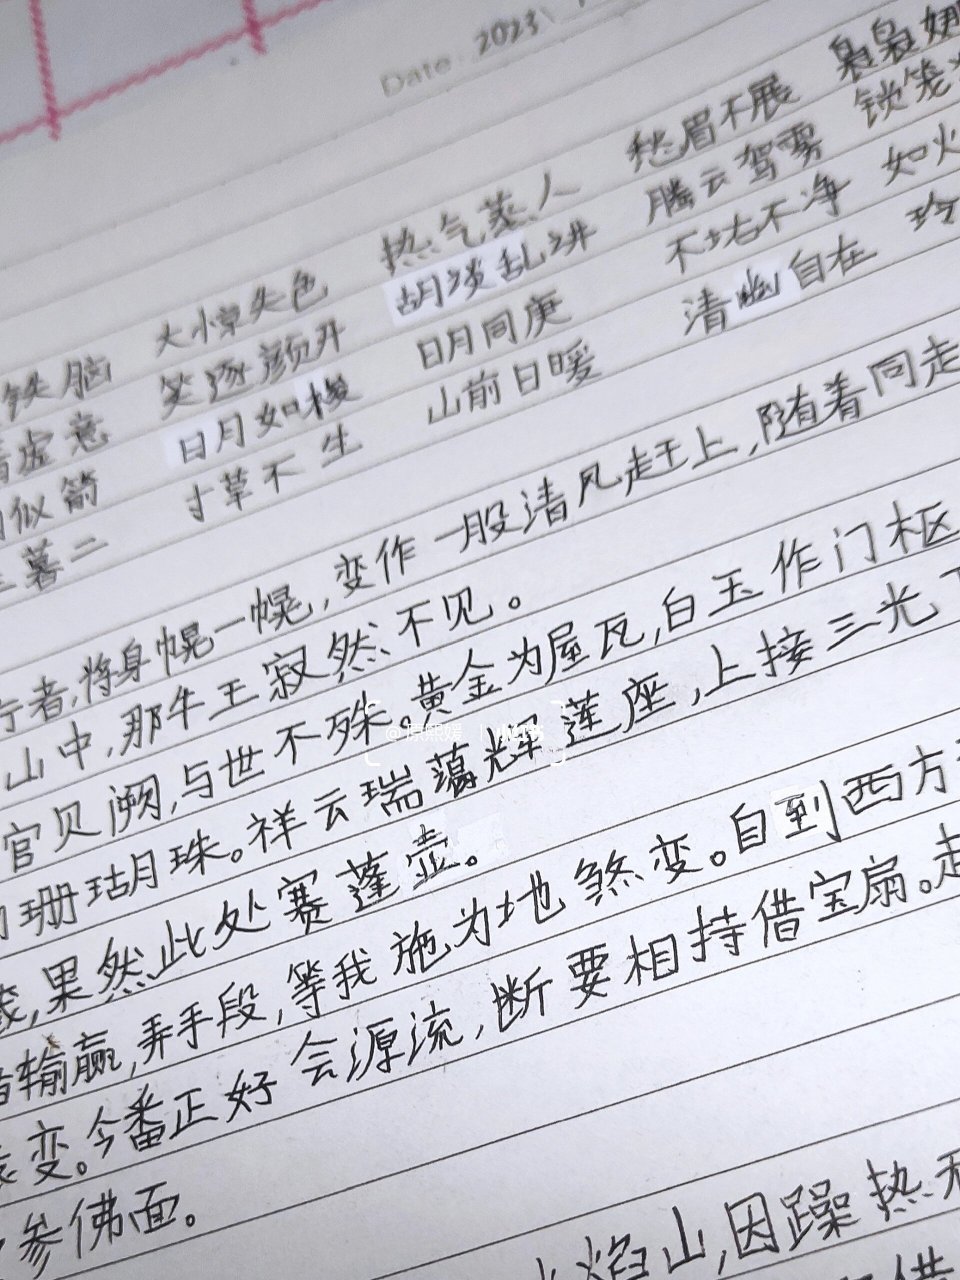 Date 2023
铁脑 大惊失色 热气蒸人 愁眉不展 袅袅
虚意 笑逐颜开 胡谈乱讲 腾云驾雾 锁笼
似箭 日月如梭 日月同庚 不沾不净 如火
薯二 寸草不生 山前日暖 清幽自在 玲
者,将身幌一幌,变作一股清风赶上,随着同走
山中,那牛王寂然不见。
宫贝阙,与世不殊。黄金为屋瓦,白玉作门枢
珊瑚珠。祥云瑞蔼辉莲座,上接三光下
果然此处赛蓬壶。
输赢,弄手段,等我施为地煞变。自到西方
变。今番正好会源流,断要相持借宝扇。赶
参佛面。
焰山,因躁热
借